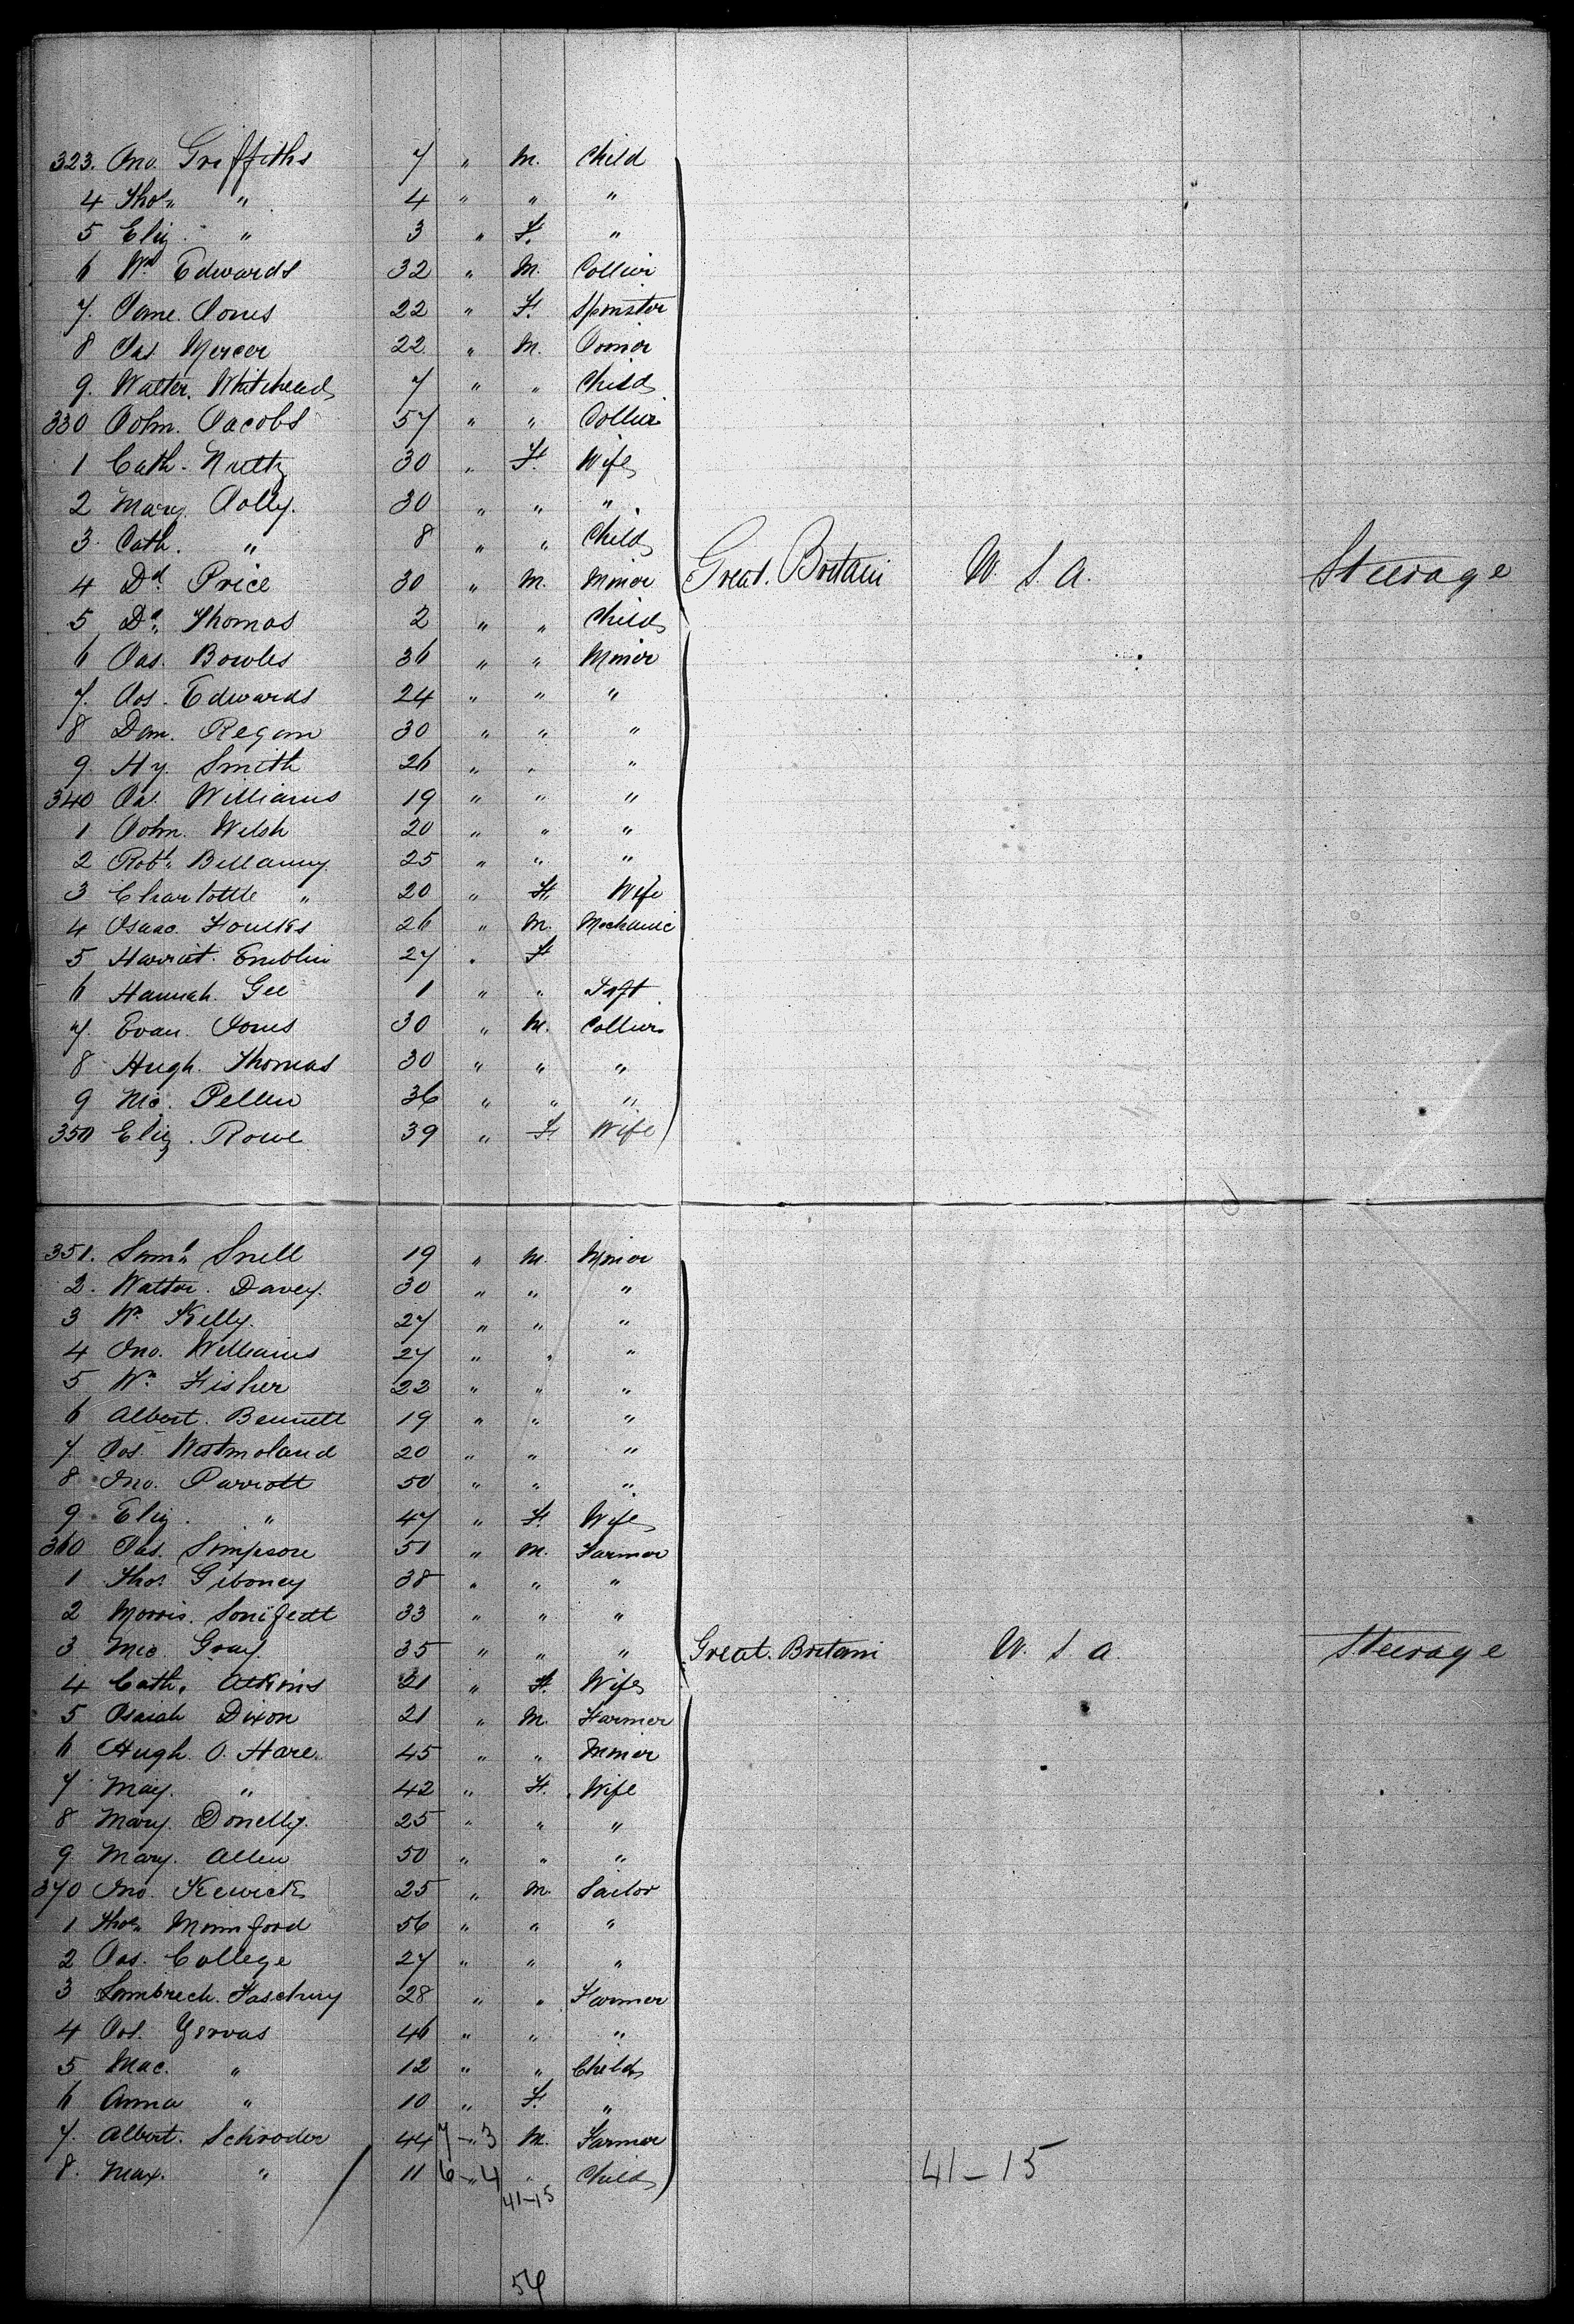 323. Jno. Griffiths 7 " M. Child
4 Thos. " 4 " " "
5 Eliz. " 3 " F. "
6 Wm Edwards 32 " M. Collier
7. Jane. Jones 22 " F. Spinster
8 Jas. Mercer 22 " M. Joiner
9. Walter. Whitehead 7 " " Child
330 John. Jacobs 57 " " Collier
1 Cath. 30 " F. Wife
2 Mary. Jolly. 30 " " "
3. Cath. " 8 " " Child
4 Dd. Price 30 " M. Minor Great. Britain U. S. A. Steerage
5 Dd. Thomas 2 " " Child
6 Jas. Bowles 36 " " Minor
7. Jos. Edwards 24 " " "
8 Dan. Regan 30 " " "
9. Hy. Smith 26 " " "
340 Jas. Williams 19 " " "
1 John. Welsh 20 " " "
2 Robt. Bellamy. 25 " " "
3 Charlottle " 20 " F. Wife
4 Isaac. Foulkes 26 " M. Mechanic
5 Harriet. Emblin 27 " F
6 Hannah. Gee 1 " " Inft.
7. Evan. Jones 30 " M. Collier
8 Hugh. Thomas 30 " " "
9 Mic. Pellen 36 " " "
350 Eliz. Rowe 39 " F Wife
351. Saml. Snell 19 " M. Minor
2. Walter. Davey. 30 " " "
3 Wm. Kelly. 27 " " "
4 Jno. Williams 27 " " "
5 Wm. Fisher 22 " " "
6 Albert. Bennett 19 " " "
7. Jos. Westmoland 20 " " "
8 Jno. Parrott 50 " " "
9 Eliz. " 47 " F. Wife
360 Jas. Simpson 51 " M. Farmer
1 Thos. Giboney 38 " " "
2 Morris. 33 " " "
3 Mic. Gray. 35 " " " Great. Britain U. S. A. Steerage
4 Cath. Atkins 21 " F. Wife
5 Isaiah Dixon 21 " M. Farmer
6 Hugh. O. Hare. 45 " " Minor
7 May. " 42 " F. Wife
8 Mary. Donelly. 25 " " "
9. Mary. Allen 50 " " "
370 Jno. Kewick 25 " M. Sailor
1 Thos. Mumford 56 " " "
2 Jas. College 27 " " "
3 Lambrech. 28 " " Farmer
4 Jos. Gervas 46 " " "
5 Mac. " 12 " " Child
6 Anna " 10 " F. "
7. Albert. Schroder 44 7-"3 M. Farmer
8. Max. " 11 6-"4 " Child 41-15
41-15
54